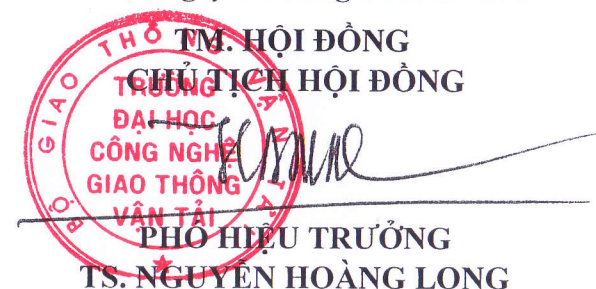 TM. HỘI ĐỒNG
CHỦ TỊCH HỘI ĐỒNG
BỘ GIAO THÔNG VẬN TẢI
TRƯỜNG
ĐẠI HỌC
CÔNG NGHỆ
GIAO THÔNG
VẬN TẢI
PHÓ HIỆU TRƯỞNG
TS. NGUYỄN HOÀNG LONG